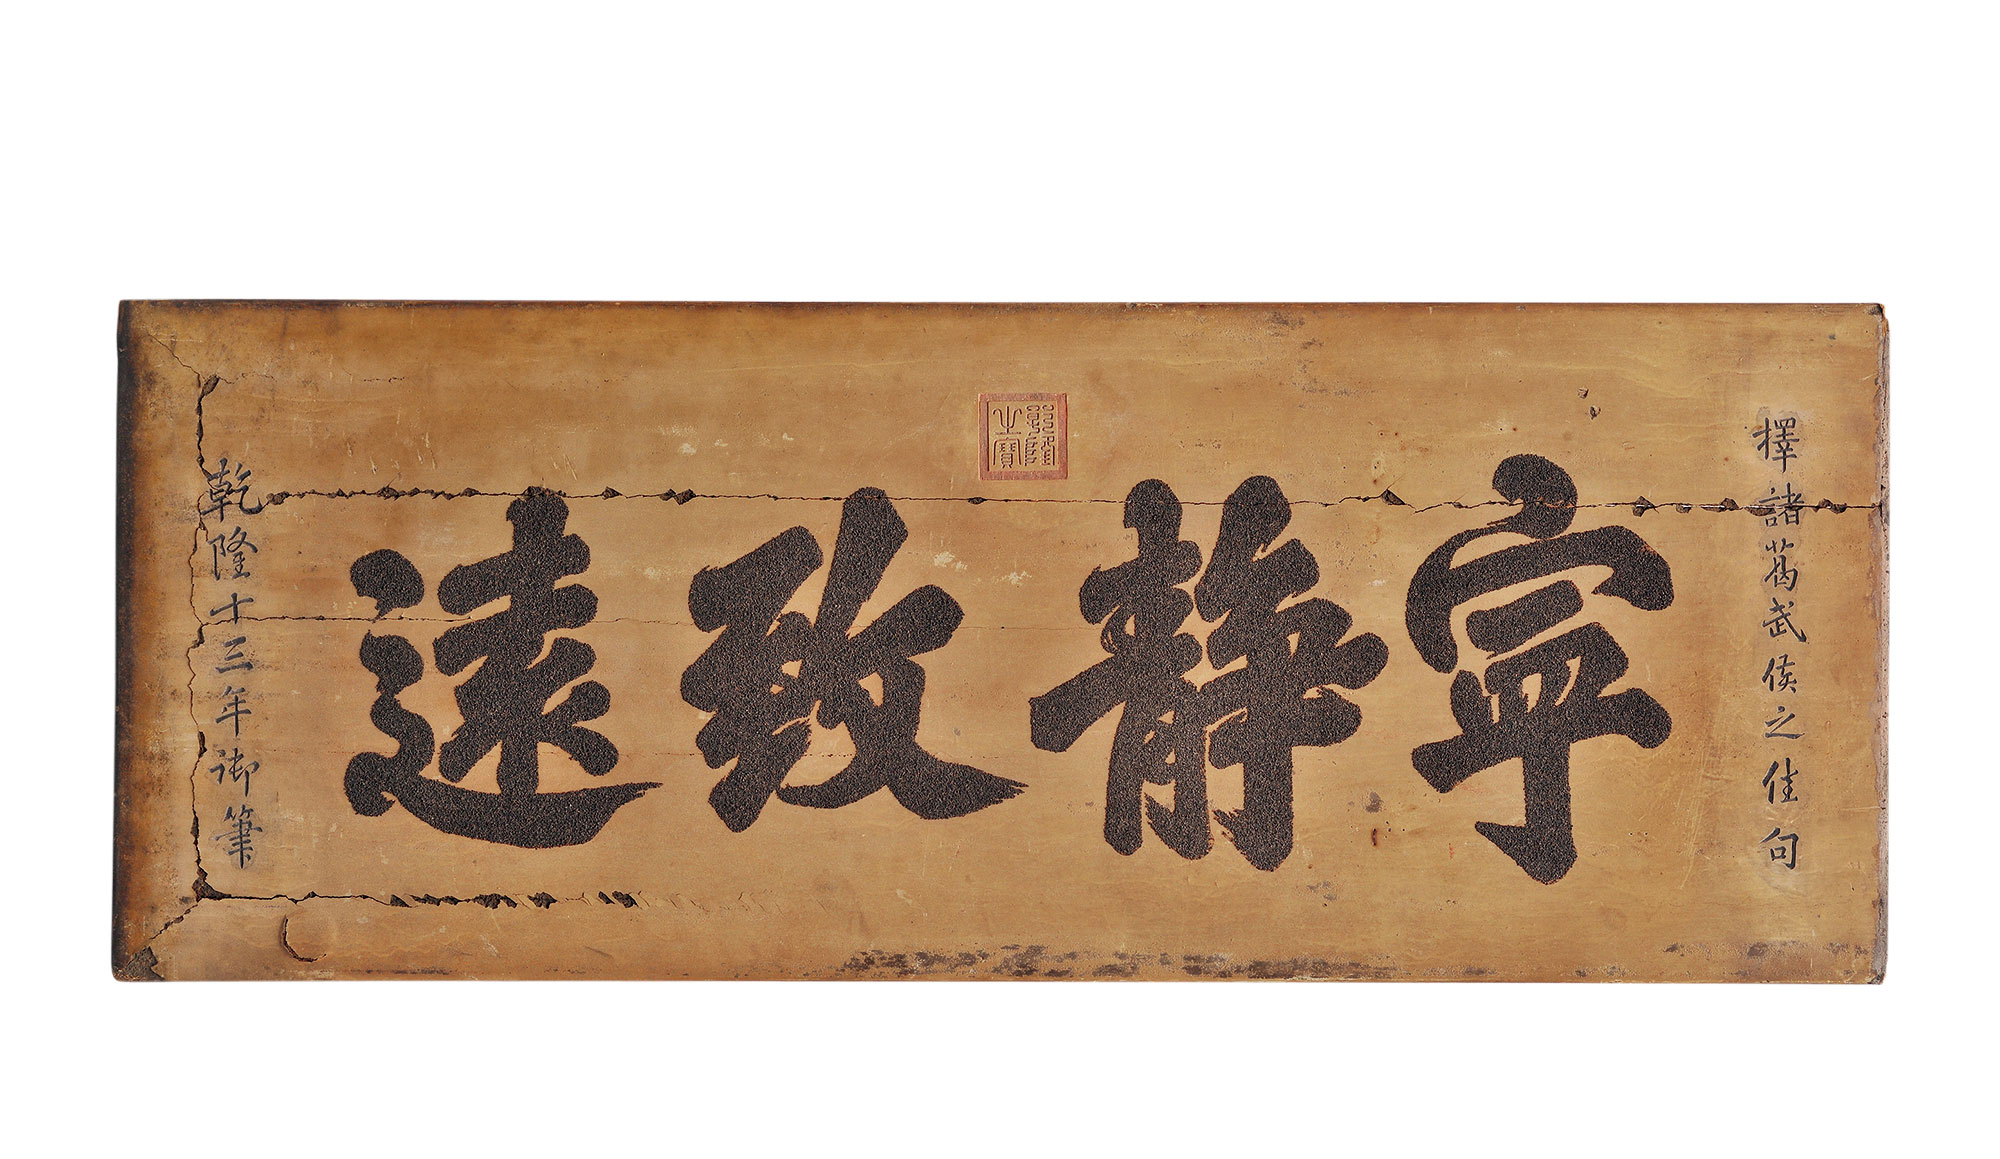 擇諸葛武侯之佳句
寧靜致遠
乾隆之寶
乾隆十三年御筆